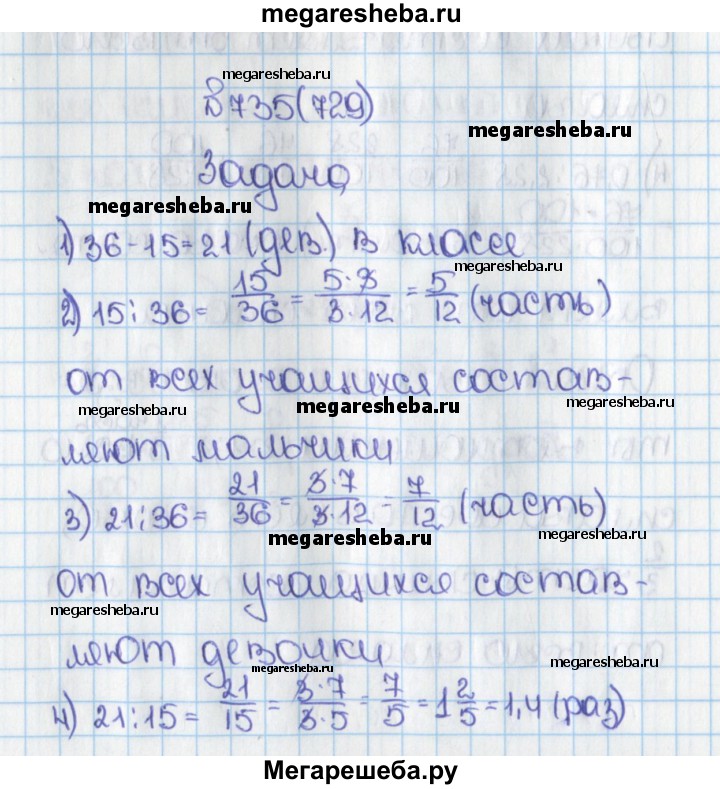 megaresheba.ru
megaresheba.ru
№ 735(729)
megaresheba.ru
Задача
megaresheba.ru
1) 36-15=21 (дев.) в классе
megaresheba.ru
2) 15:36= 15/36 = 5·3/3·12 = 5/12 (часть)
от всех учащихся состав-
megaresheba.ru megaresheba.ru megaresheba.ru
ляют мальчики
megaresheba.ru
3) 21:36= 21/36 = 3·7/3·12 = 7/12 (часть)
megaresheba.ru megaresheba.ru
от всех учащихся состав-
megaresheba.ru
ляют девочки
megaresheba.ru
4) 21:15= 21/15 = 3·7/3·5 = 7/5 = 1 2/5 = 1,4 (раз)
Мегарешеба.ру